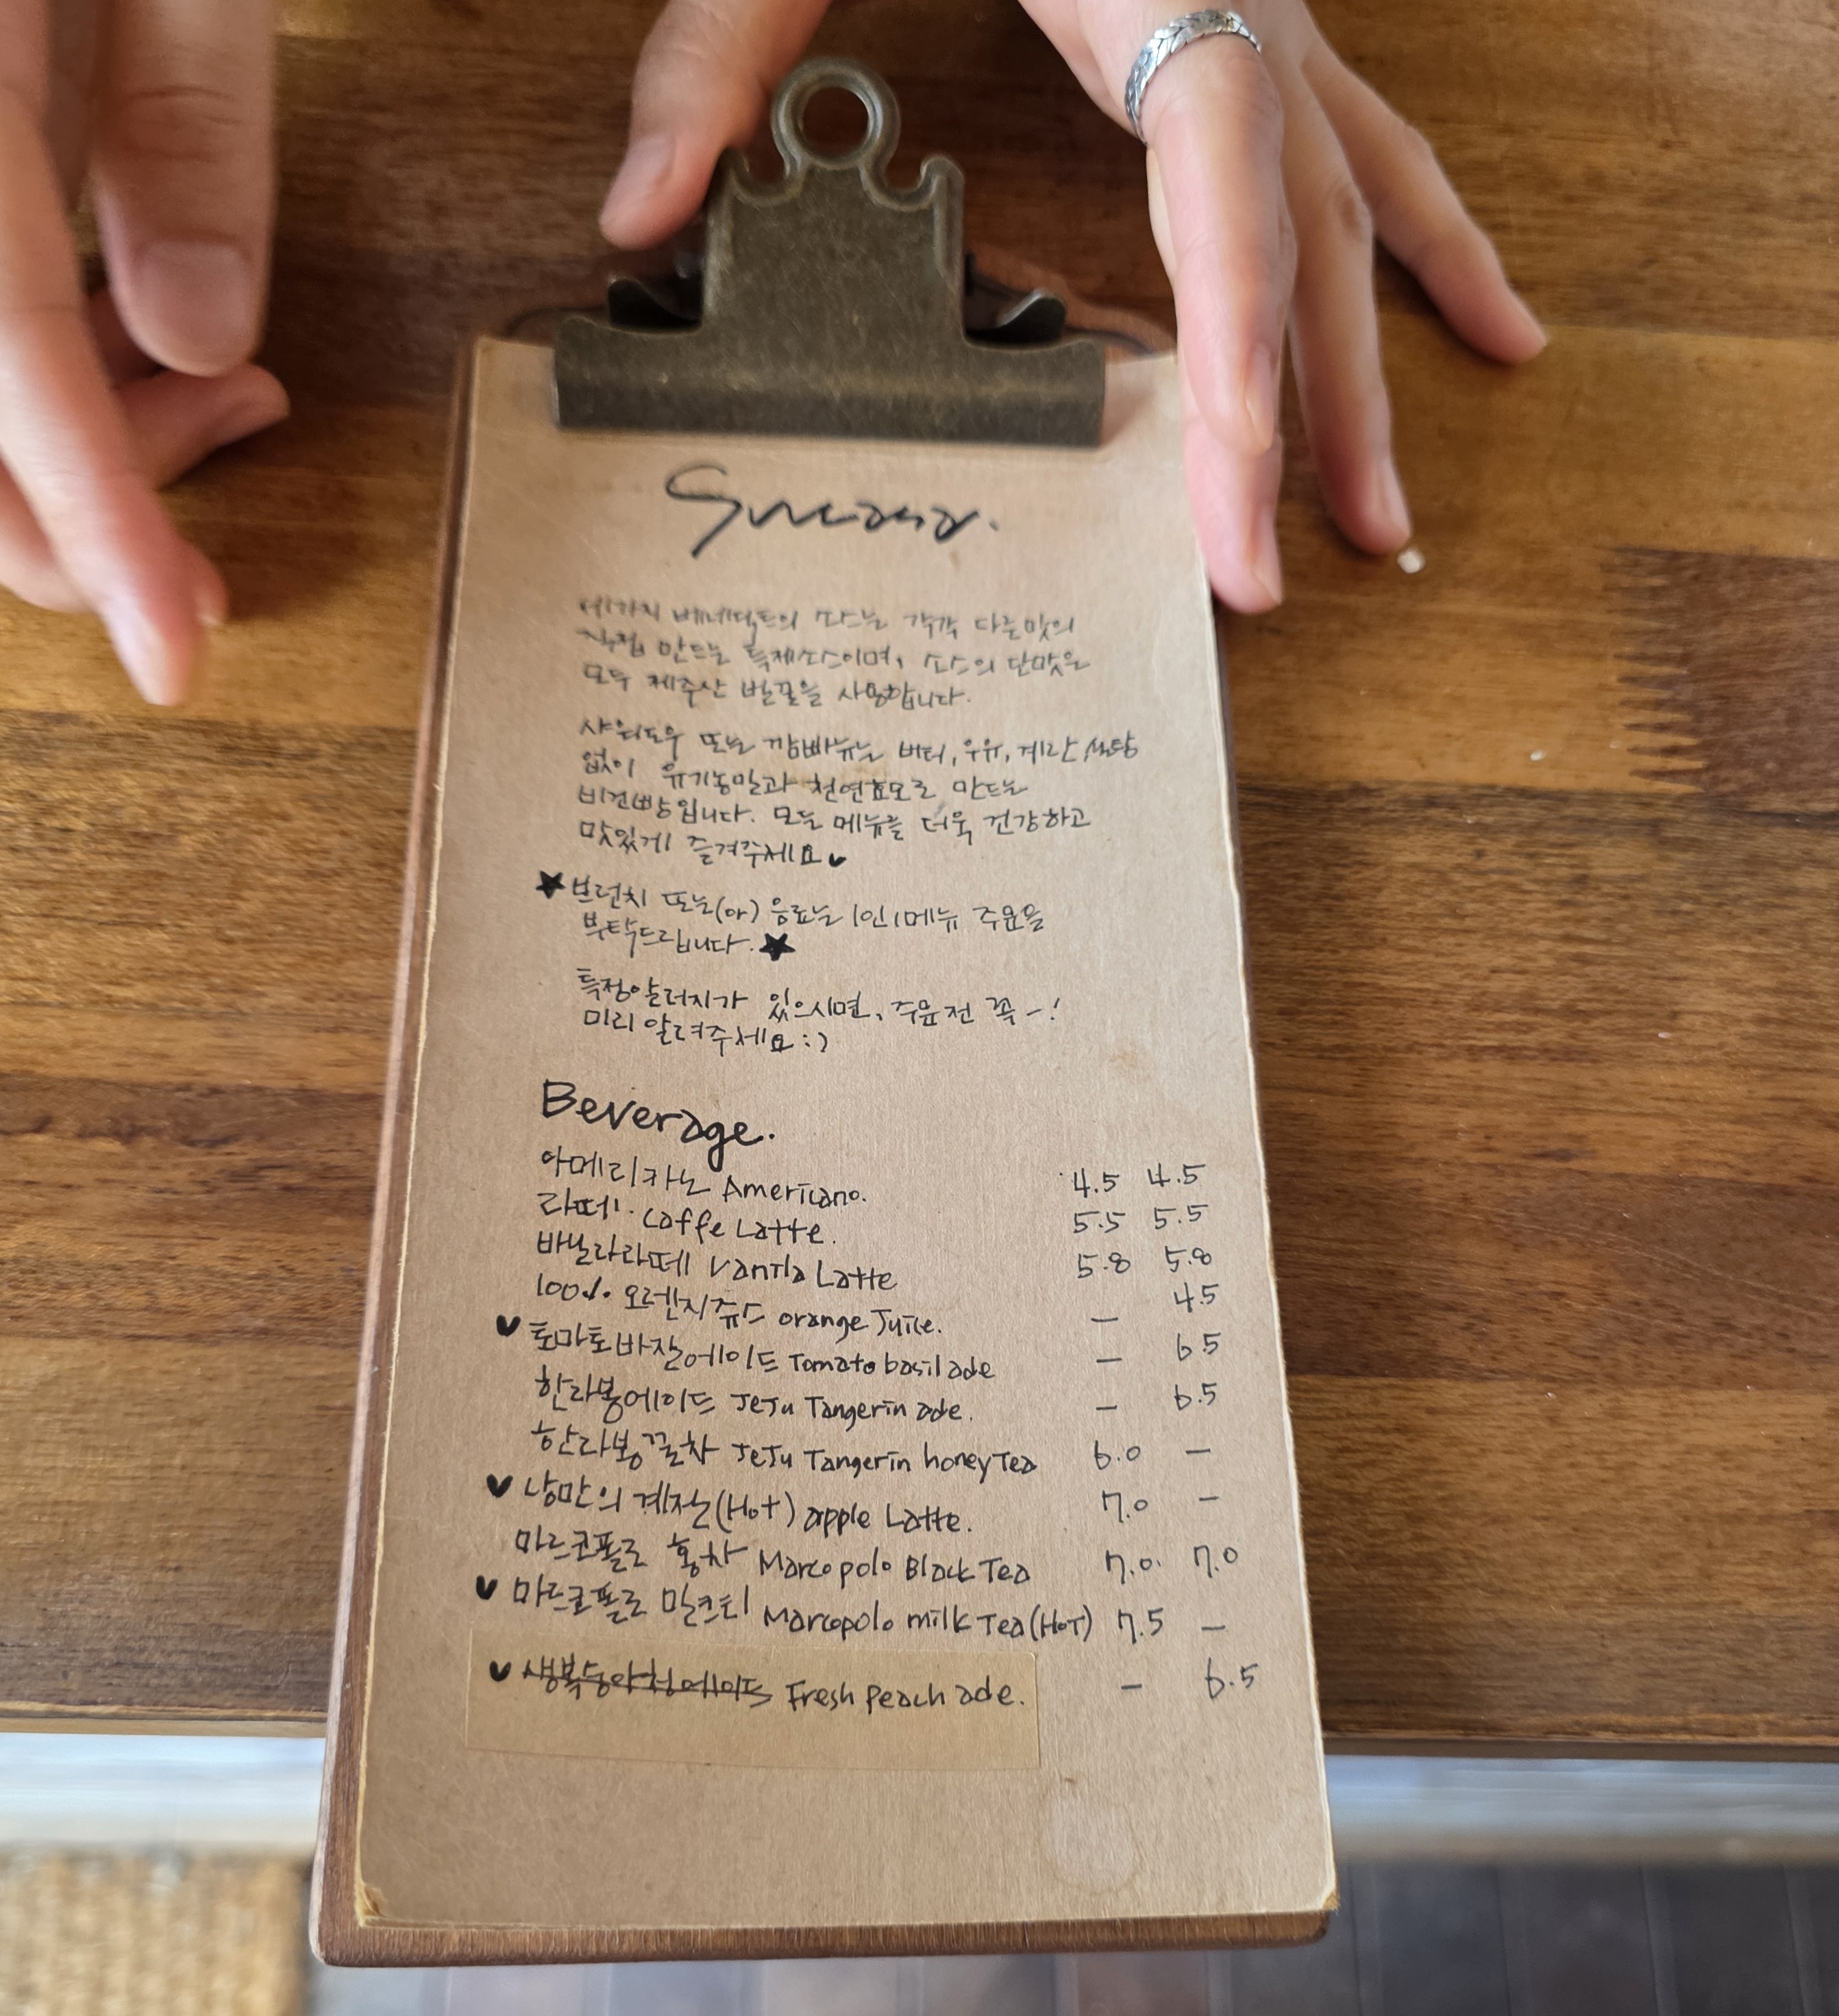 세가지 베네딕트의 소스는 각각 다른맛의
직접 만드는 특제소스이며, 소스의 단맛은
모두 제주산 벌꿀을 사용합니다.
사워도우 또는 깜빠뉴는 버터, 우유, 계란, 설탕
없이 유기농밀과 천연효모로 만드는
비건빵입니다. 모든 메뉴를 더욱 건강하고
맛있게 즐겨주세요♥
★브런치 또는(and) 음료는 1인1메뉴 주문을
부탁드립니다.★
특정알러지가 있으시면, 주문전 꼭~!
미리 알려주세요 :)
Beverage.
아메리카노 Americano. 4.5 4.5
라떼. Caffe Latte. 5.5 5.5
바닐라라떼 Vanila Latte 5.8 5.8
100% 오렌지쥬스 orange Juice. — 4.5
♥ 토마토바질에이드 Tomato basil ade — 6.5
한라봉에이드 JeJu Tangerin ade. — 6.5
한라봉꿀차 JeJu Tangerin honey Tea 6.0 —
♥ 낭만의 계절(Hot) apple Latte. 7.0 —
마르코폴로 홍차 Marcopolo Black Tea 7.0. 7.0
♥ 마르코폴로 밀크티 Marcopolo milk Tea (HoT) 7.5 —
♥ 생복숭아청에이드 Fresh peach ade. — 6.5